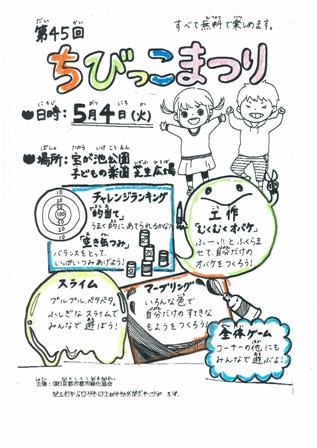 第45回
すべて無料で楽しめます。
ちびっこまつり
日時：5月4日(火)
場所：宝が池公園
子どもの楽園 芝生広場
チャレンジランキング
「的当て」
うまく的にあてられるかな?
「空き缶つみ」
バランスをとって、
いっぱいつみあげよう!
10
30
50
100
工作
「むくむくオバケ」
ふーっ!!とふくらま
せて、自分だけの
オバケをつくろう!
スライム
プルプル、ペタペタ
ふしぎなスライムで
みんなで遊ぼう!
マーブリング
いろんな色で
自分だけのすてきな
もようをつくろう!
全体ゲーム
コーナーの他にも
みんなで遊ぶよ!
主催：(財)京都市都市緑化協会